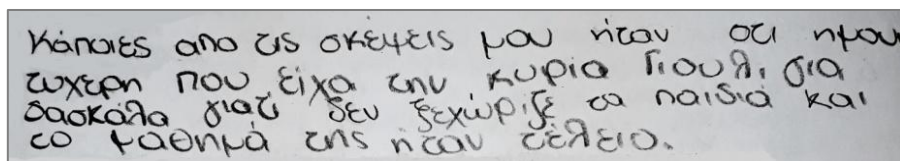 Κάποιες απο τις σκέψεις μου ήταν οτι ημου
τυχερη που είχα την κυρία Γιουλι για
δασκάλα γιατί δεν ξεχώριζε τα παιδιά και
το μάθημά της ήταν τέλειο.